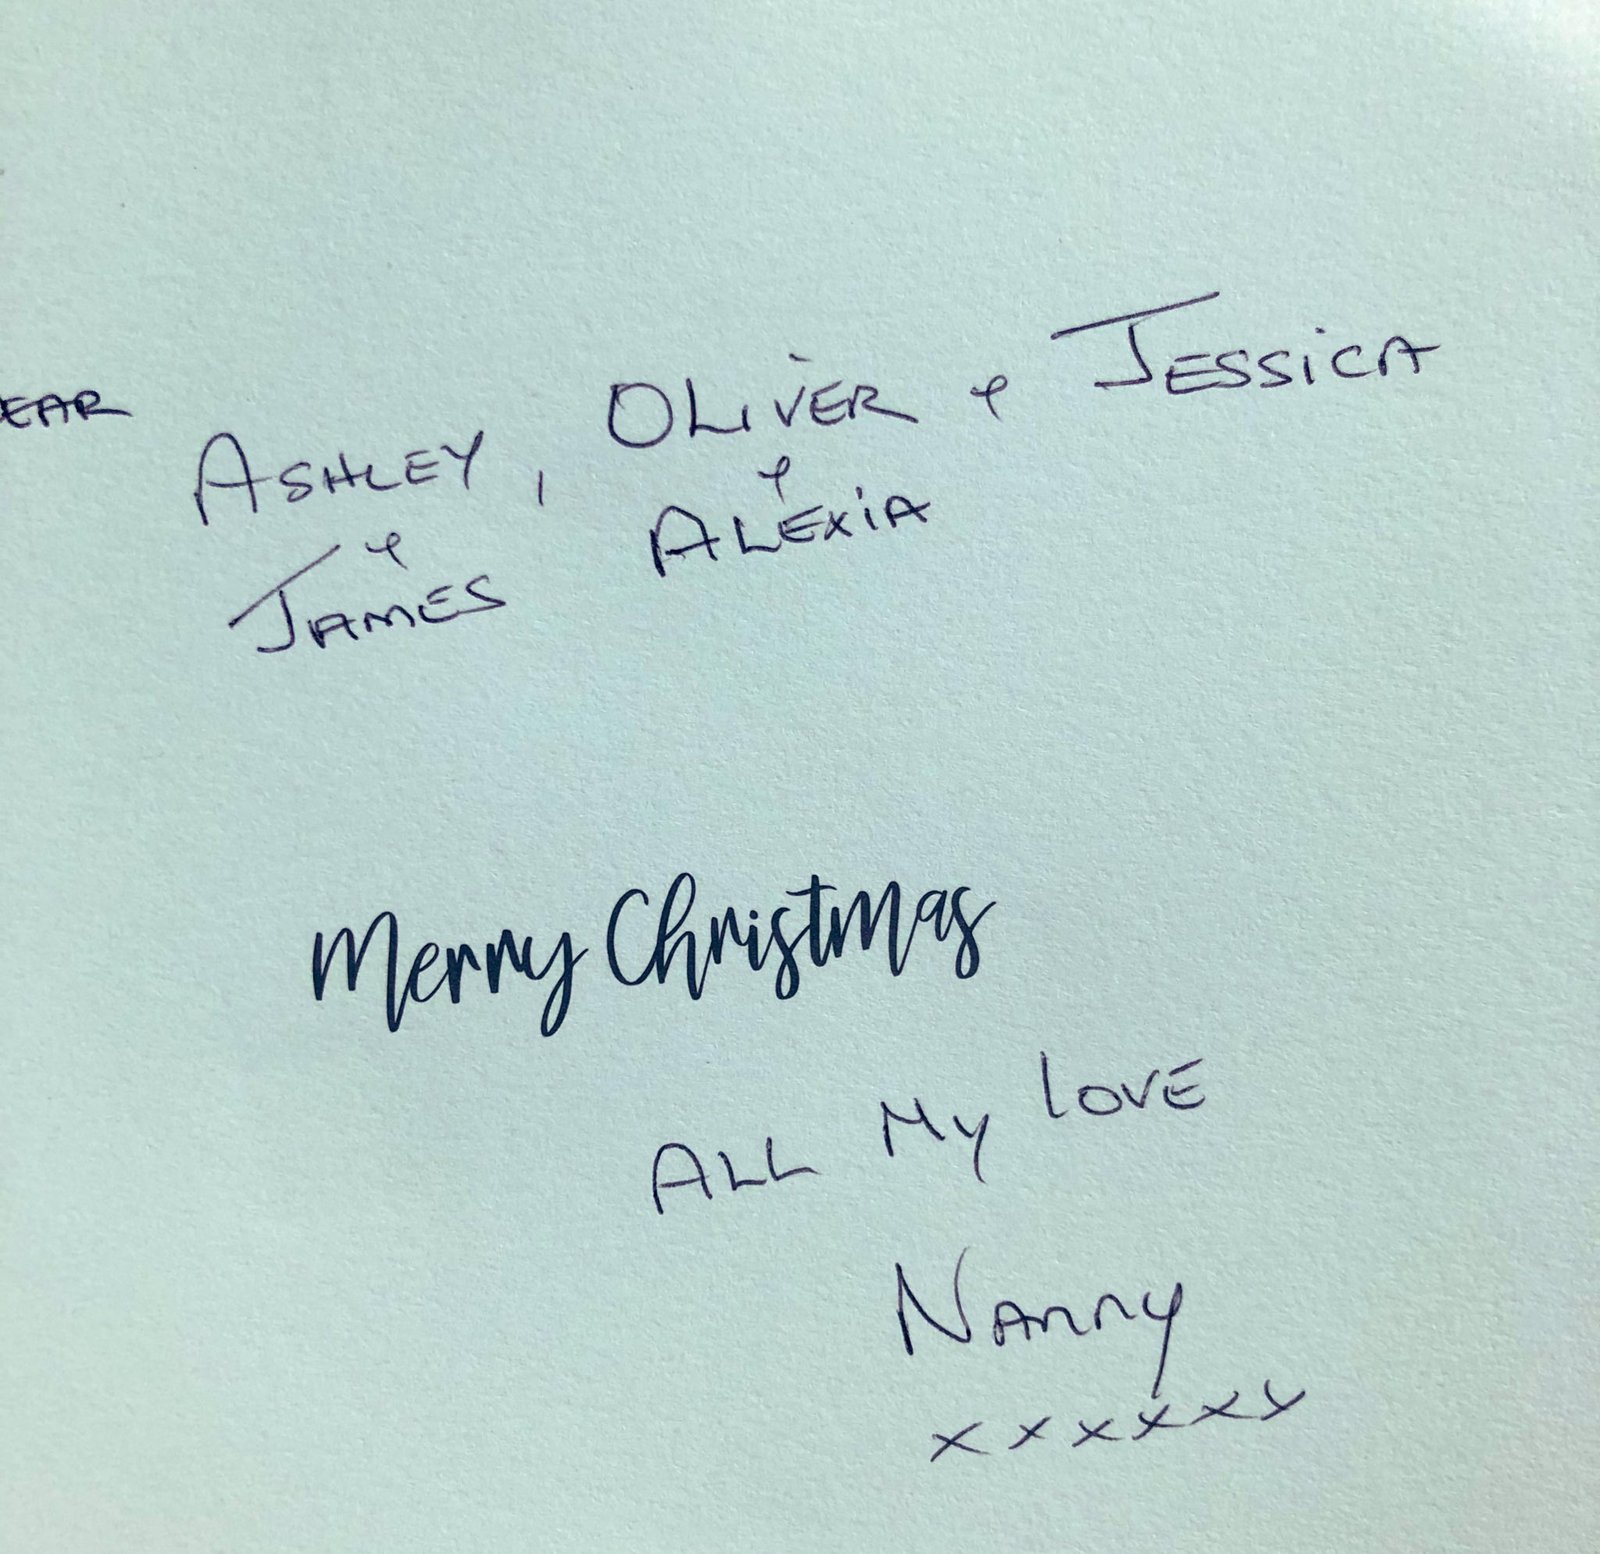 EAR ASHLEY, OLIVER & JESSICA
& &
JAMES ALEXIA
Merry Christmas
ALL MY LOVE
NANNY
xxxxxx